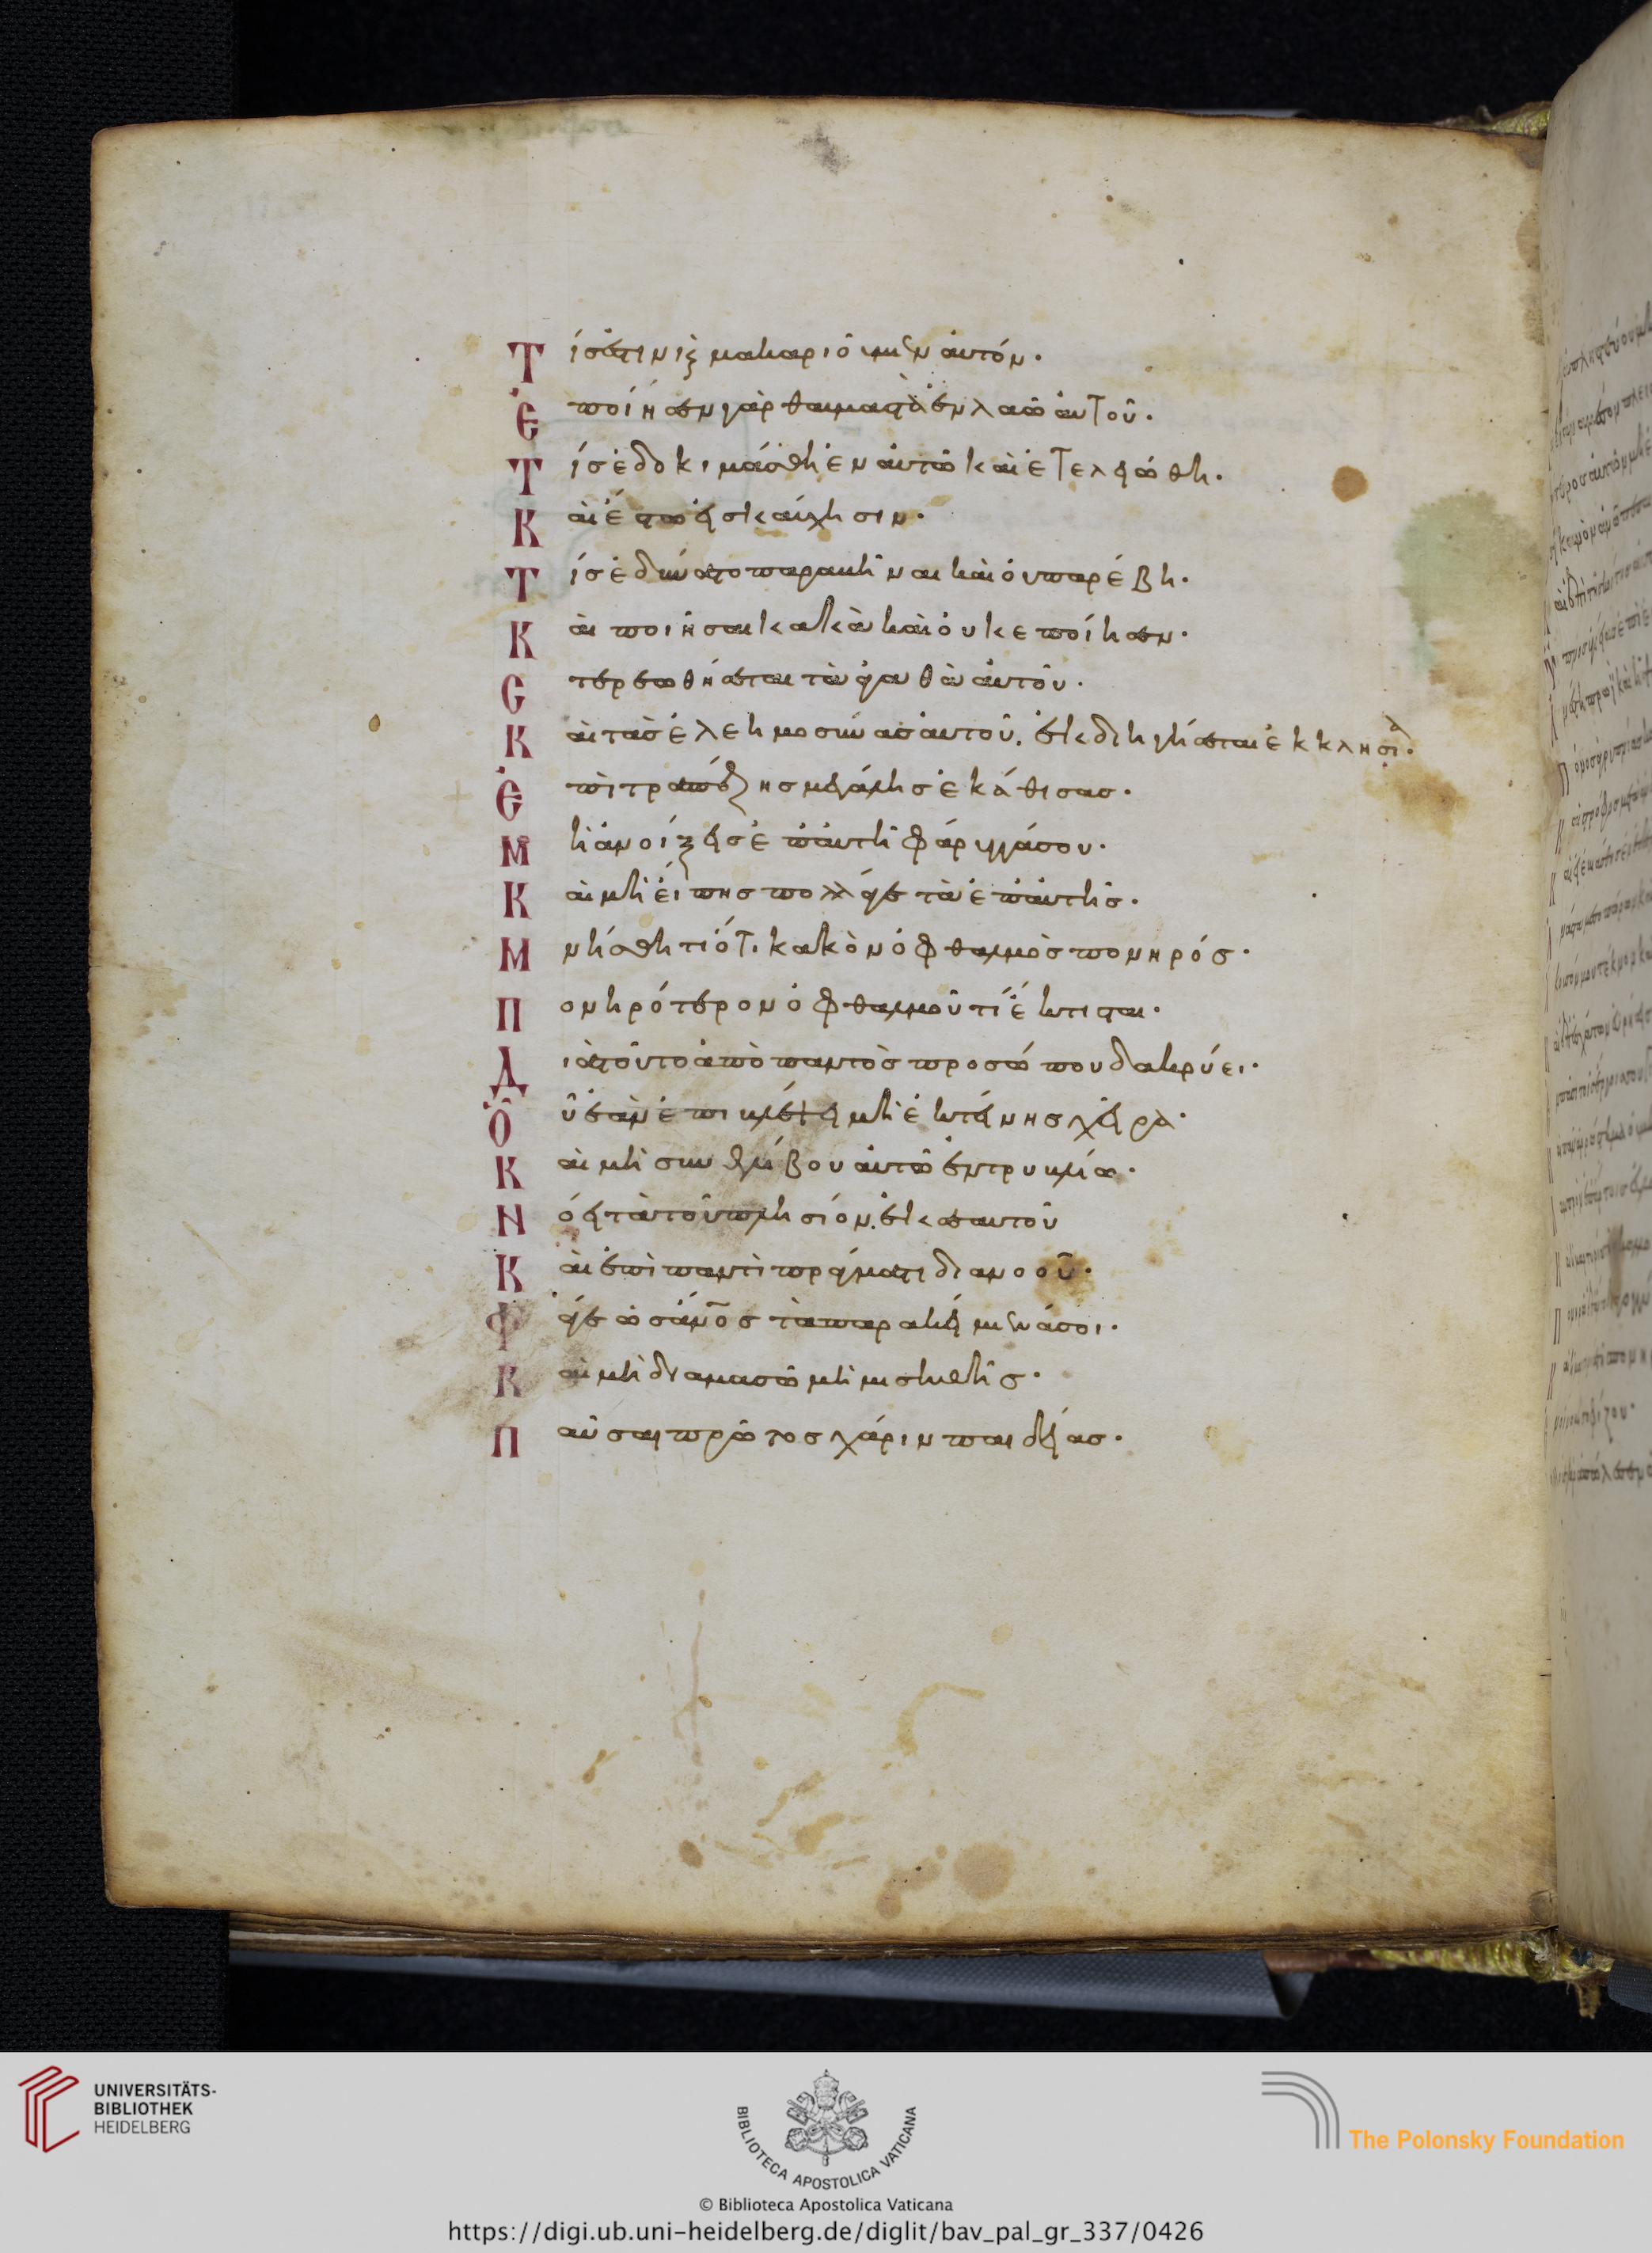 Τίς ἐστιν ἵξ μακαριοῦμεν αὐτόν·
Ἐποίησεν γὰρ θαυμαστὰ ἐν λαῶ αὐτοῦ·
Τίς ἐδοκιμάσθη ἐν αὐτῶ καὶ ἐτελειώθη·
Καὶ ἔστω εἰς καύχησιν·
Τίς ἐδύνατο παραβῆναι καὶ οὐ παρέβη·
Καὶ ποιῆσαι κακὰ καὶ οὐκ ἐποίησεν·
Στερεωθήσεται τὰ ἀγαθὰ αὐτοῦ·
Καὶ τὰς ἐλεημοσύνας αὐτοῦ. ἐκδιηγήσεται ἐκκλησία·
Ἐπὶ τραπέζης μεγάλης ἐκάθισας·
Μὴ ἀνοίξεις ἐπ' αὐτῆ φάρυγγά σου·
Καὶ μὴ εἴπης πολλά γε τὰ ἐπ' αὐτῆς·
Μνήσθητι ὅτι κακὸν ὀφθαλμὸς πονηρός·
Πονηρότερον ὀφθαλμοῦ τί ἔκτισται·
Διατοῦτο ἀπὸ παντὸς προσώπου δακρύει·
Οὗ ἐὰν ἐπιβλέπει μὴ ἐκτείνης χεῖρα·
Καὶ μὴ συνθλίβου αὐτῶ ἐν τρυβλίω·
Νόει τὰ τοῦ πλησίον. ἐκ σεαυτοῦ
Καὶ ἐπὶ παντὶ πράγματι διανοοῦ·
Φάγε ὡς ἄνος τὰ παρακείμενά σοι·
Καὶ μὴ διαμασῶ μὴ μισηθῆς·
Παῦσαι πρῶτος χάριν παιδείας·
UNIVERSITÄTS-
BIBLIOTHEK
HEIDELBERG
BIBLIOTECA APOSTOLICA VATICANA
The Polonsky Foundation
© Biblioteca Apostolica Vaticana
https://digi.ub.uni-heidelberg.de/diglit/bav_pal_gr_337/0426